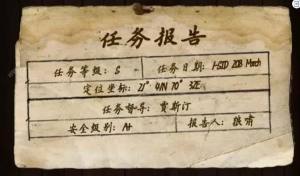 任务报告
任务等级: S 任务日期: 1-SID 20B March
定位坐标: 21° 41N 70° 32E
任务督导: 贾斯汀
安全级别: A+ 报告人: 狼啸